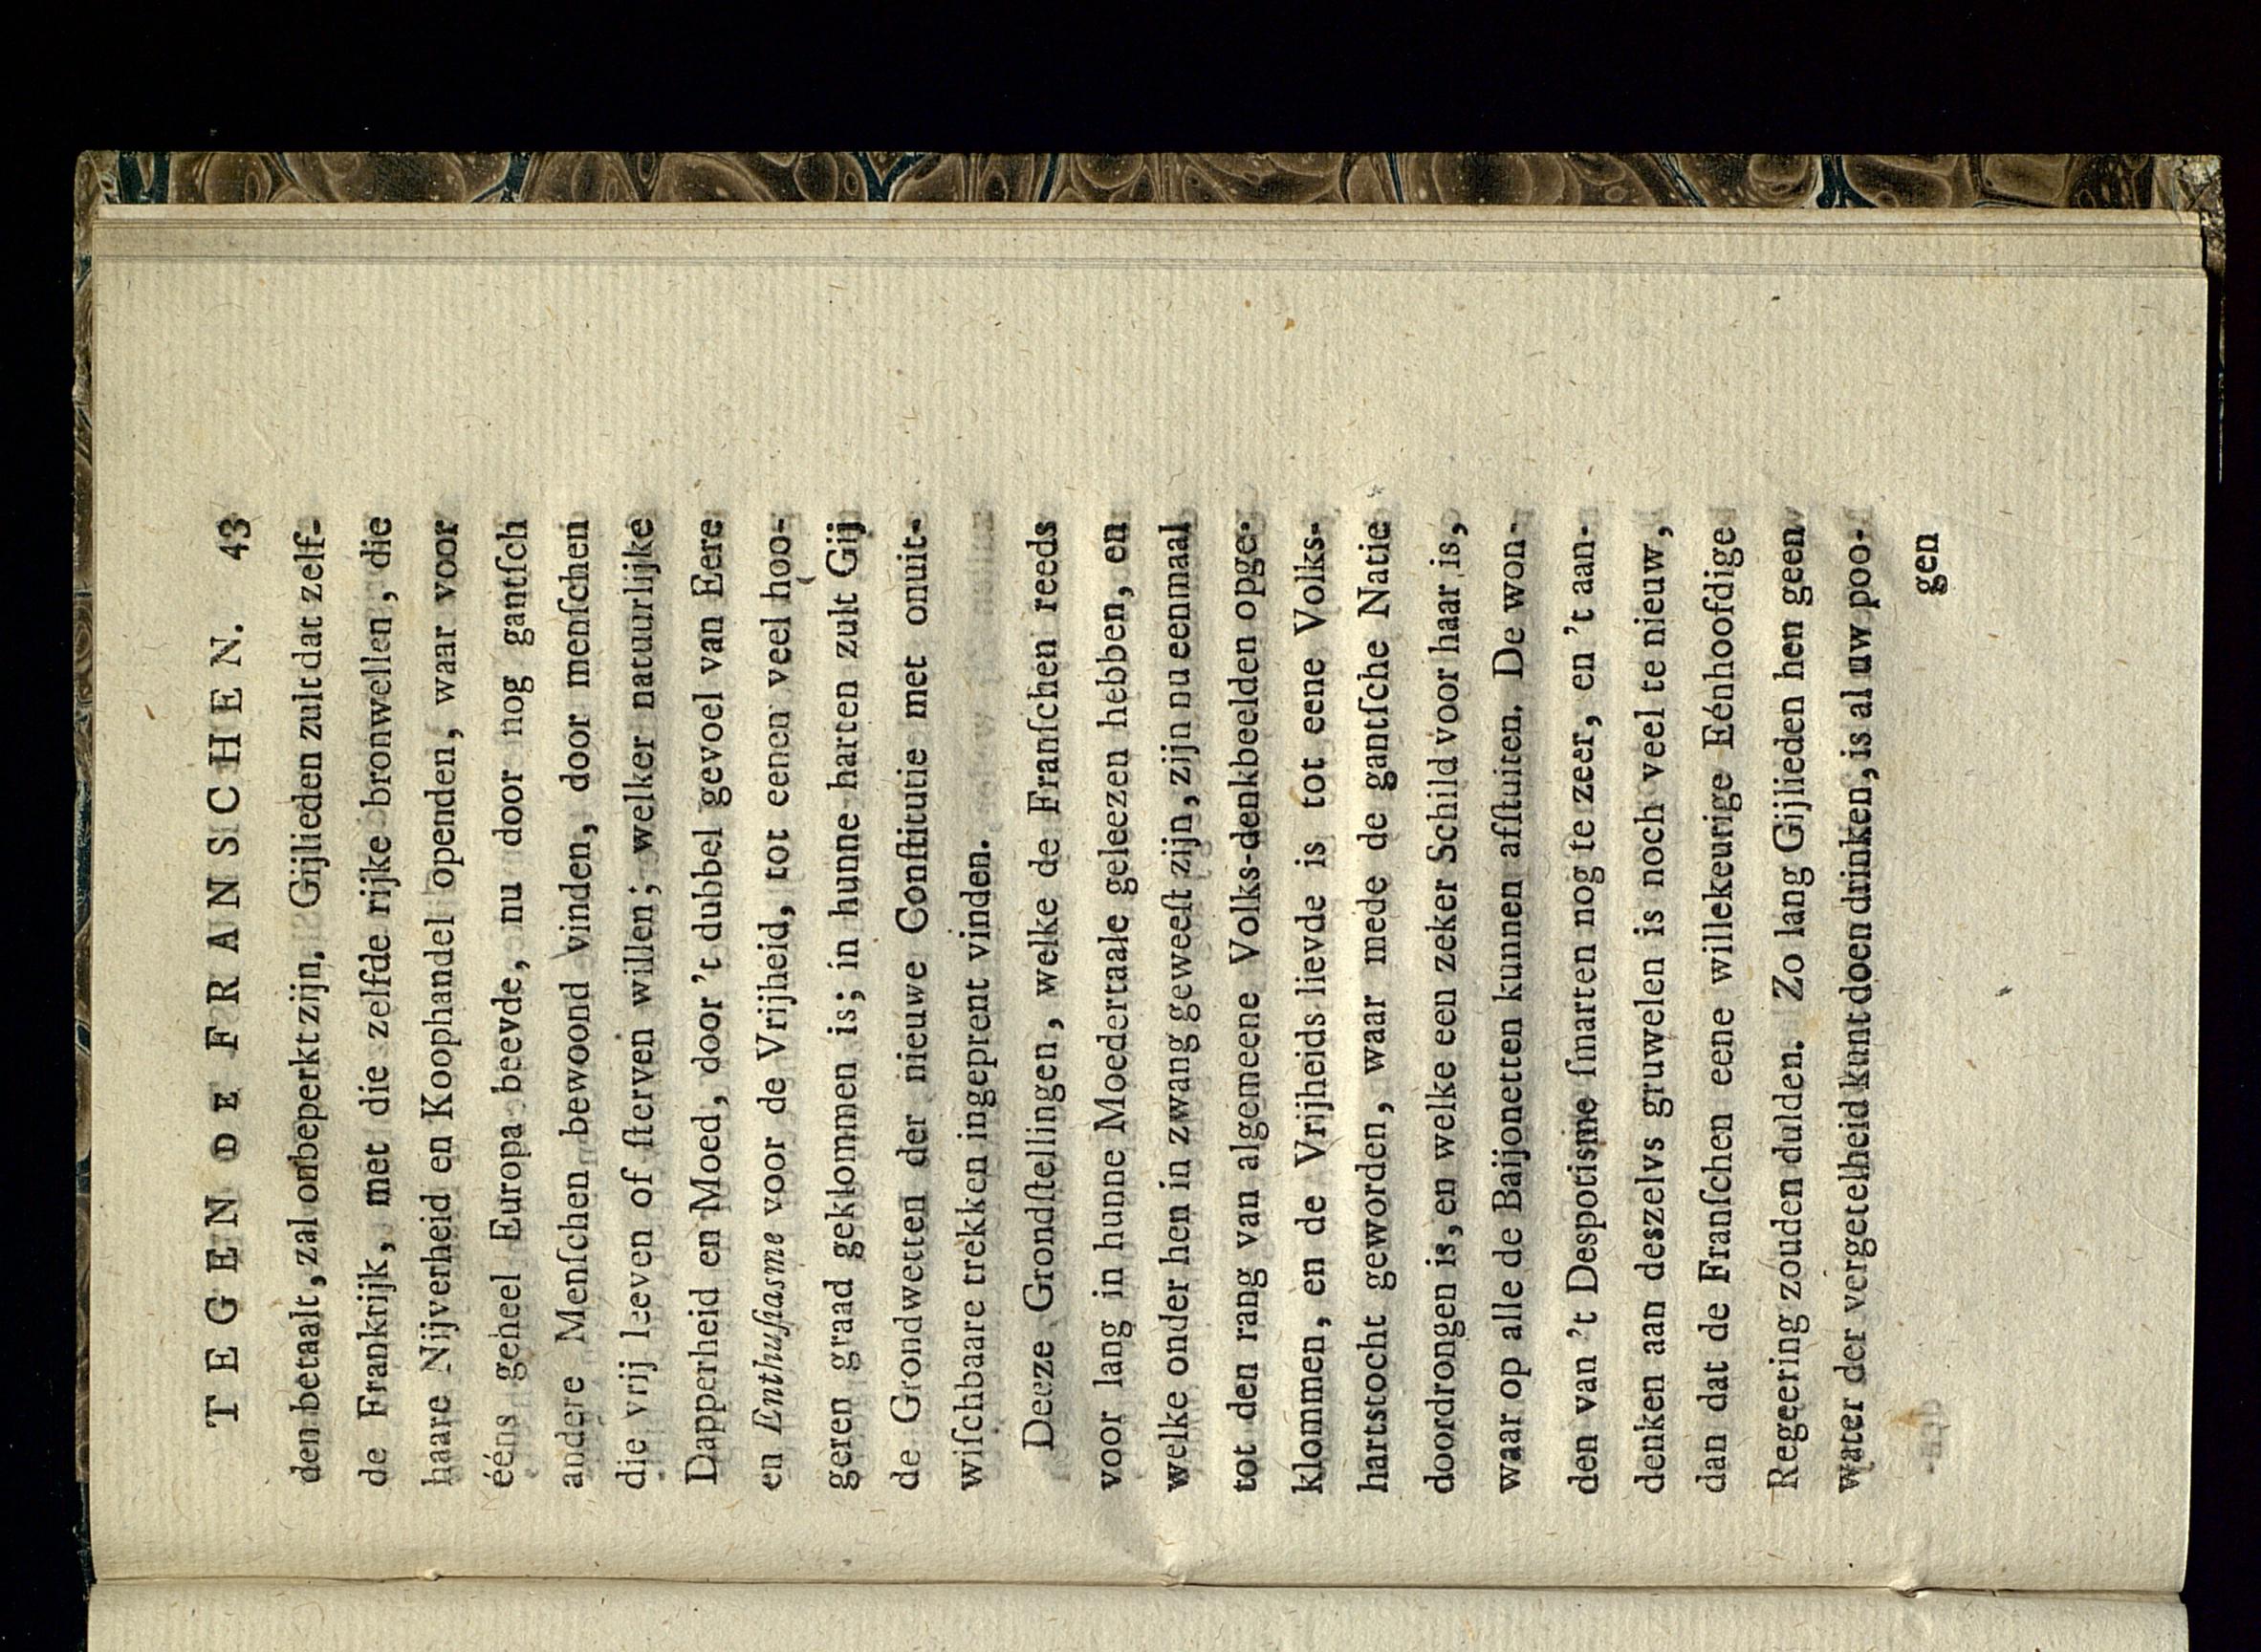 TEGEN DE FRANSCHEN. 43
den betaalt, zal onbeperkt zijn. Gijlieden zult dat zelf-
de Frankrijk, met die zelfde rijke bronwellen, die
haare Nijverheid en Koophandel openden, waar voor
ééns geheel Europa beevde, nu door nog gantſch
andere Menſchen bewoond vinden, door menſchen
die vrij leeven of ſterven willen; welker natuurlijke
Dapperheid en Moed, door 't dubbel gevoel van Eere
en Enthuſiasme voor de Vrijheid, tot eenen veel hoo-
geren graad geklommen is; in hunne harten zult Gij
de Grondwetten der nieuwe Conſtitutie met onuit-
wiſchbaare trekken ingeprent vinden.
Deeze Grondſtellingen, welke de Franſchen reeds
voor lang in hunne Moedertaale geleezen hebben, en
welke onder hen in zwang geweeſt zijn, zijn nu eenmaal
tot den rang van algemeene Volks-denkbeelden opge-
klommen, en de Vrijheids-lievde is tot eene Volks-
hartstocht geworden, waar mede de gantſche Natie
doordrongen is, en welke een zeker Schild voor haar is,
waar op alle de Baijonetten kunnen afſtuiten. De won-
den van 't Despotisme ſmarten nog te zeer, en 't aan-
denken aan deszelvs gruwelen is noch veel te nieuw,
dan dat de Franſchen eene willekeurige Eénhoofdige
Regeering zouden dulden. Zo lang Gijlieden hen geen
water der vergetelheid kunt doen drinken, is al uw poo-
gen